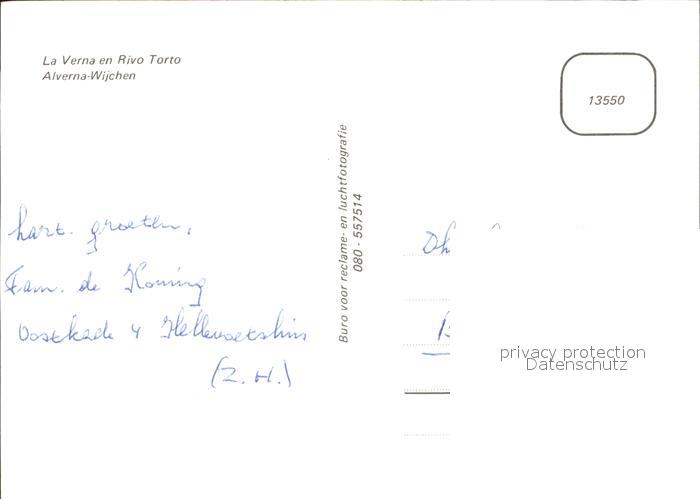 La Verna en Rivo Torto
Alverna-Wijchen
13550
Buro voor reclame- en luchtfotografie
080 - 557514
hart. groeten,
Fam. de Koning
Oostkade 4 Hellevoetsluis
(Z.H.)
Dh
privacy protection
Datenschutz